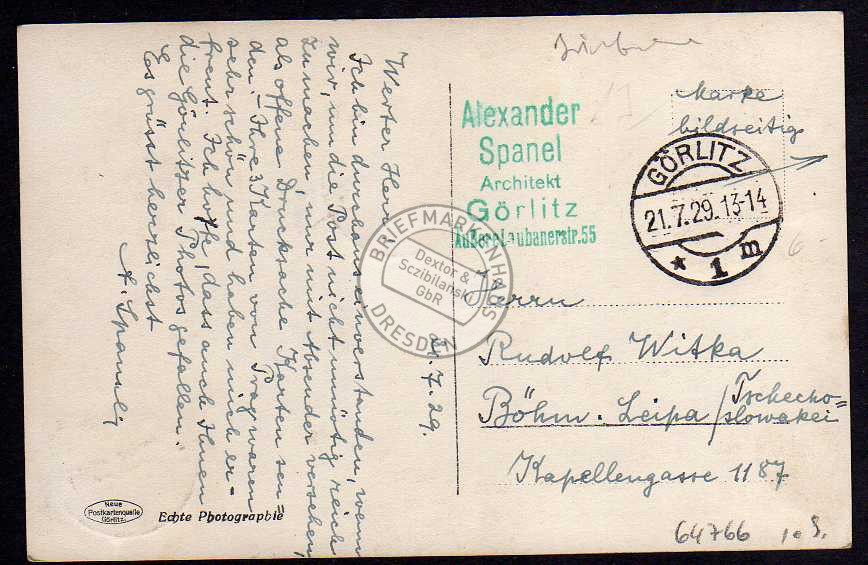 21. 7. 29.
Werter Herr
Ich bin durchaus einverstanden, wenn
wir, um die Post nicht unnötig reich
zu machen, nur mit Absender versehen,
als offene Drucksache Karten sen-
den. Ihre 3 Karten von Prag waren
sehr schön und haben mich er-
freut. Ich hoffe, dass auch Ihnen
die Görlitzer Photos gefallen.
Es grüsst herzlichst
A. Spanel
Neue
Postkartenquelle
Görlitz
Echte Photographie
Alexander
Spanel
Architekt
Görlitz
Äußere Laubanerstr. 55
Marke
bildseitig
GÖRLITZ
21.7.29.13-14
* 1 m
BRIEFMARKENHAUS
Dextor &
Sczibilanski
GbR
DRESDEN
Herrn
Rudolf Witka
Böhm. Leipa / Tschecho=
slowakei
Kapellengasse 1187
64766